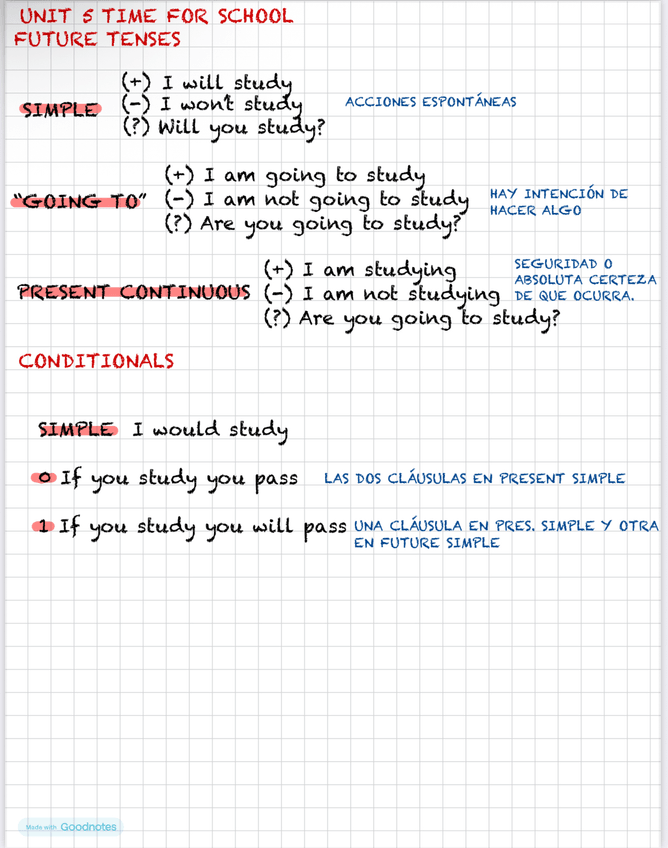 UNIT 5 TIME FOR SCHOOL
FUTURE TENSES
(+) I will study
SIMPLE (-) I won't study ACCIONES ESPONTÁNEAS
(?) Will you study?
(+) I am going to study
"GOING TO" (-) I am not going to study HAY INTENCIÓN DE
HACER ALGO
(?) Are you going to study?
(+) I am studying SEGURIDAD O
ABSOLUTA CERTEZA
PRESENT CONTINUOUS (-) I am not studying DE QUE OCURRA.
(?) Are you going to study?
CONDITIONALS
SIMPLE I would study
0 If you study you pass LAS DOS CLÁUSULAS EN PRESENT SIMPLE
1 If you study you will pass UNA CLÁUSULA EN PRES. SIMPLE Y OTRA
EN FUTURE SIMPLE
Made with Goodnotes